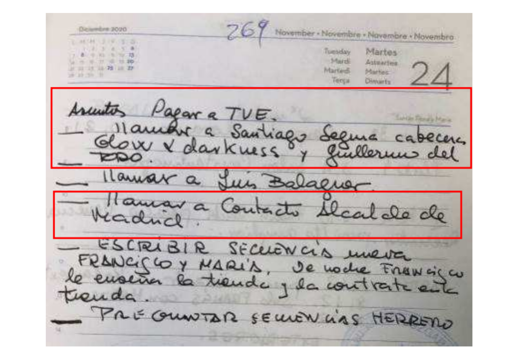 Diciembre 2020
269
November • Novembre • Novembre • Novembro
Tuesday Martes
Mardi Asteartea
Martedì Martes
Terça Dimarts
24
Asuntos Pagar a TVE.
— llamar a Santiago Segura cabecera
Glow & darkness y Guillermo del
— llamar a Luis Balaguer
— llamar a Contacto Alcalde de
Madrid.
— ESCRIBIR SECUENCIA nueva
FRANCISCO Y MARÍA, De noche Francisco
le enseña la tienda y la contrata en la
tienda.
— PREGUNTAR SECUENCIAS HERRERO